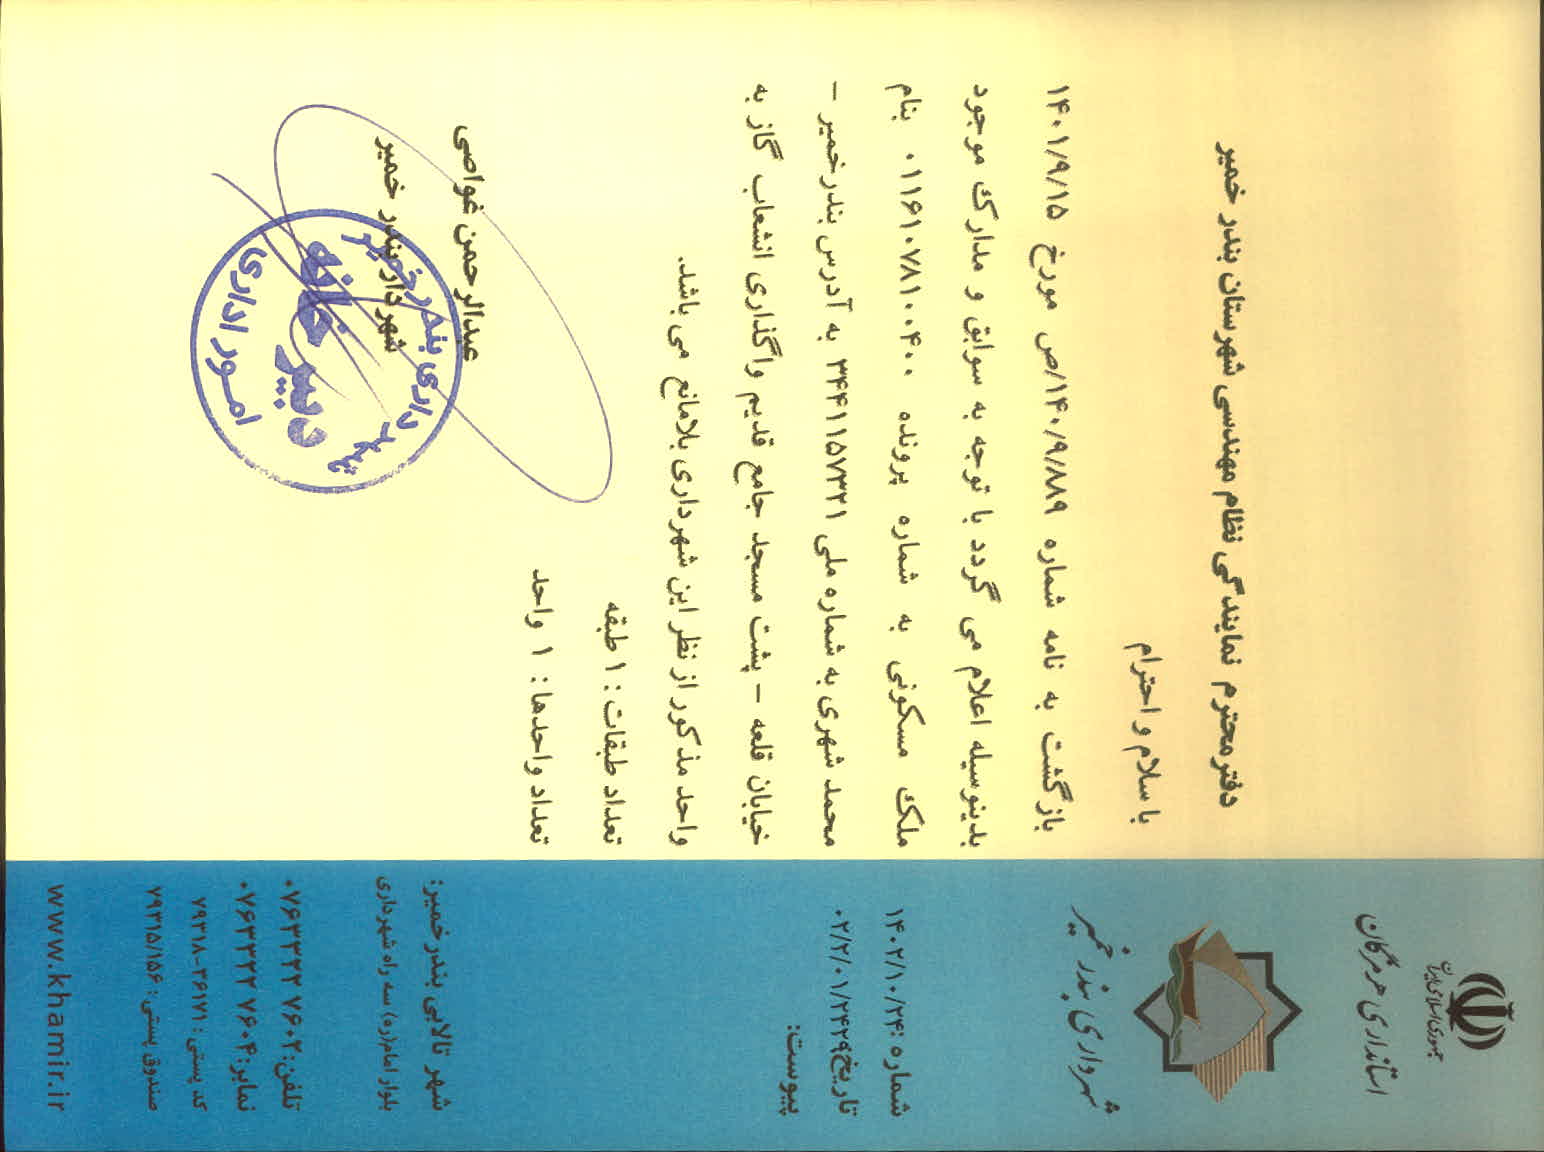 جمهوری اسلامی ایران
استانداری هرمزگان
شهرداری بندر خمیر
شماره :۱۴۰۲/۱۰/۲۴
تاریخ۰۲/۲/۰۱/۲۴۲۹
پیوست:
دفتر محترم نمایندگی نظام مهندسی شهرستان بندر خمیر
با سلام و احترام
بازگشت به نامه شماره ۱۴۰/۹/۸۸۹/ص مورخ ۱۴۰۱/۹/۱۵
بدینوسیله اعلام می گردد با توجه به سوابق و مدارک موجود
ملک مسکونی به شماره پرونده ۰۱۱۶۱۰۷۸۱۰۰۴۰۰ بنام
محمد شهری به شماره ملی ۳۴۴۱۱۵۷۳۲۱ به آدرس بندرخمیر –
خیابان قلعه – پشت مسجد جامع قدیم واگذاری انشعاب گاز به
واحد مذکور از نظر این شهرداری بلامانع می باشد.
تعداد طبقات : ۱ طبقه
تعداد واحدها : ۱ واحد
عبدالرحمن غواصی
شهردار بندر خمیر
شهرداری بندر خمیر
دبیرخانه
امور اداری
شهر تالابی بندر خمیر:
بلوار امام(ره) سه راه شهرداری
تلفن:۰۷۶۳۳۲۲ ۷۶۰۲
نمابر:۰۷۶۳۳۲۲ ۷۶۰۴
کد پستی : ۷۹۳۱۸-۲۶۱۷۱
صندوق پستی : ۷۹۳۱۵/۱۵۶
www.khamir.ir